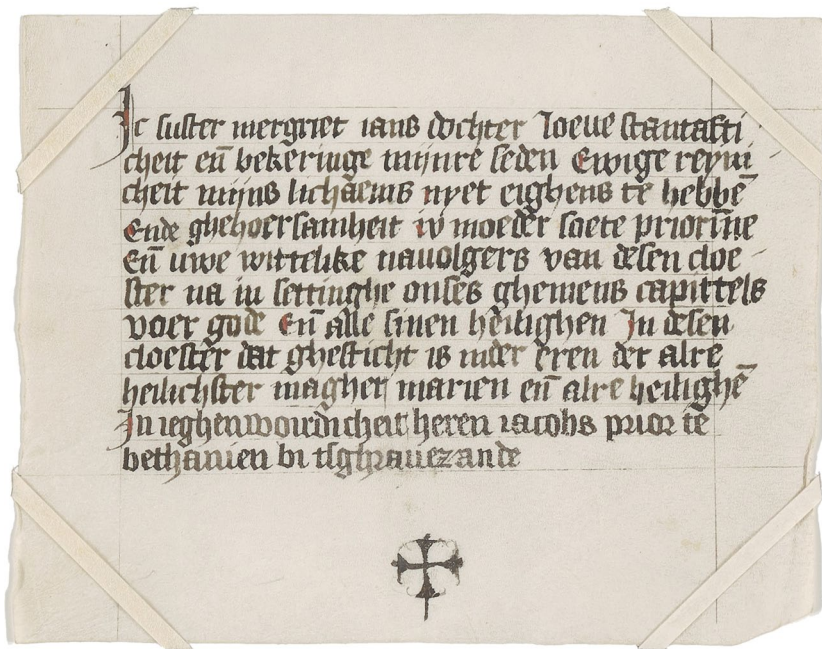 Ic suster mergriet ians dochter Ioeue stantafti
cheit eñ bekeringe mijnre seden Ewige reyni
cheit mijns lichaems nyet eighens te hebbē
Ende ghehoersamheit iv moeder soete priorīne
Eñ uwe wittelike nauolgers van desen cloe
ster na in settinghe onses ghemens capittels
voer gode Eñ alle sinen heilighen In desen
cloester dat ghesticht is inder eren der alre
heilichster magher marien eñ alre heilighē
In ieghenwoirdicheit heren iacobs prior te
bethanien bi tsghrauezande